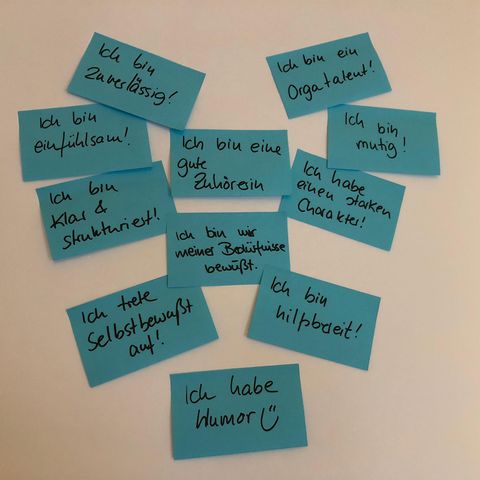 Ich bin
Zuverlässig!
Ich bin ein
Orgatalent!
Ich bin
einfühlsam!
Ich bin eine
gute
Zuhörerin
Ich bin
mutig!
Ich bin
Klar &
strukturiert!
Ich habe
einen starken
Charakter!
Ich bin mir
meiner Bedürfnisse
bewußt.
Ich trete
Selbstbewußt
auf!
Ich bin
hilfsbereit!
Ich habe
Humor